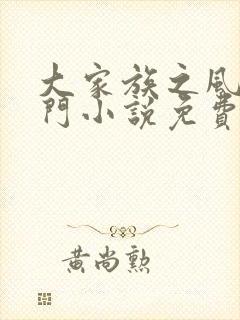 大家族之風
門小說免費
黃尚勲